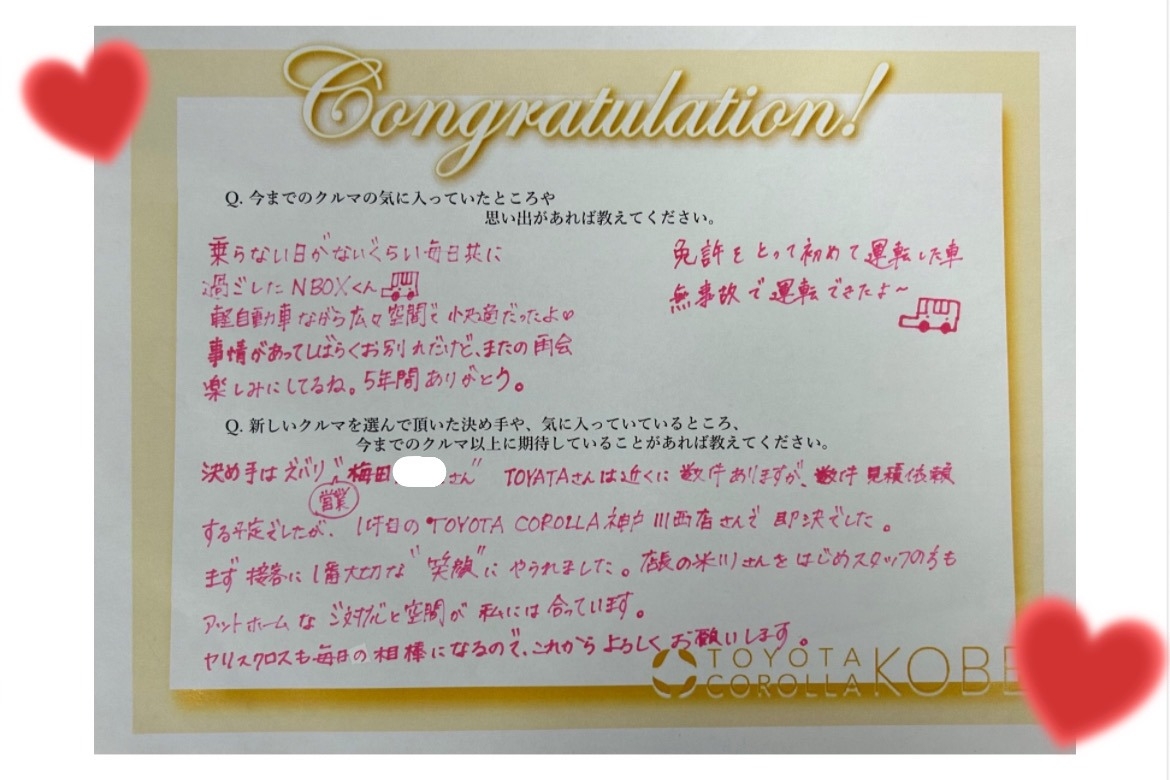 Congratulation!
Q. 今までのクルマの気に入っていたところや
思い出があれば教えてください。
乗らない日がないくらい毎日共に
過ごした NBOXくん
軽自動車ながら広々空間で快適だったよ♡
事情があってしばらくお別れだけど、またの再会
楽しみにしてるね。5年間ありがとう。
免許をとって初めて運転した車
無事故で運転できたよ〜
Q. 新しいクルマを選んで頂いた決め手や、気に入っていているところ、
今までのクルマ以上に期待していることがあれば教えてください。
決め手はズバリ"梅田 さん" TOYATAさんは近くに数件ありますが、数件見積依頼
営業
する予定でしたが、1件目のTOYOTA COROLLA神戸 川西店さんで即決でした。
まず接客に1番大切な"笑顔"にやられました。店長の米川さんをはじめスタッフの方も
アットホームなご対応と空間が私には合っています。
ヤリスクロスも毎日の相棒になるので、これからよろしくお願いします。
TOYOTA
COROLLA KOBE